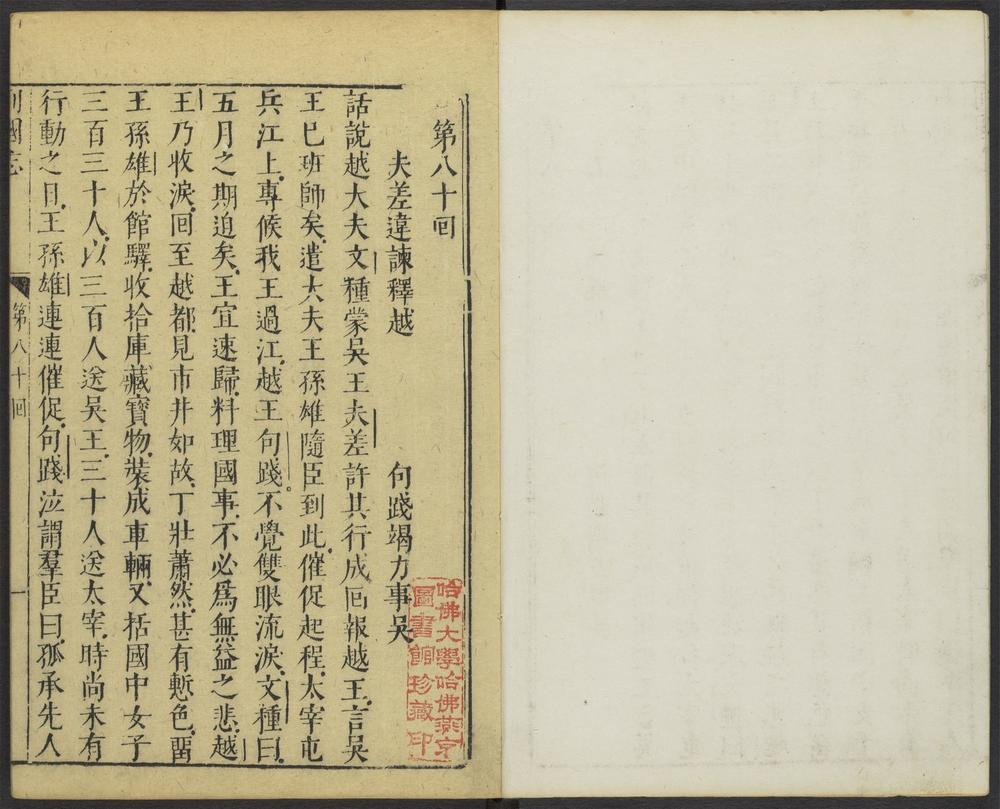 第八十回
夫差違諫釋越　句踐竭力事吳
話說越大夫文種蒙吳王夫差許其行成回報越王言吳
王巳班師矣遣大夫王孫雄隨臣到此催促起程太宰屯
兵江上專候我王過江越王句踐不覺雙眼流淚文種曰
五月之期迫矣王宜速歸料理國事不必爲無益之悲越
王乃收淚回至越都見市井如故丁壯蕭然甚有慙色畱
王孫雄於館驛收拾庫藏寶物裝成車輛又括國中女子
三百三十人以三百人送吳王三十人送太宰時尚未有
行動之日王孫雄連連催促句踐泣謂羣臣曰孤承先人
列國志
第八十回
一
哈佛大學哈佛燕京
圖書館珍藏印